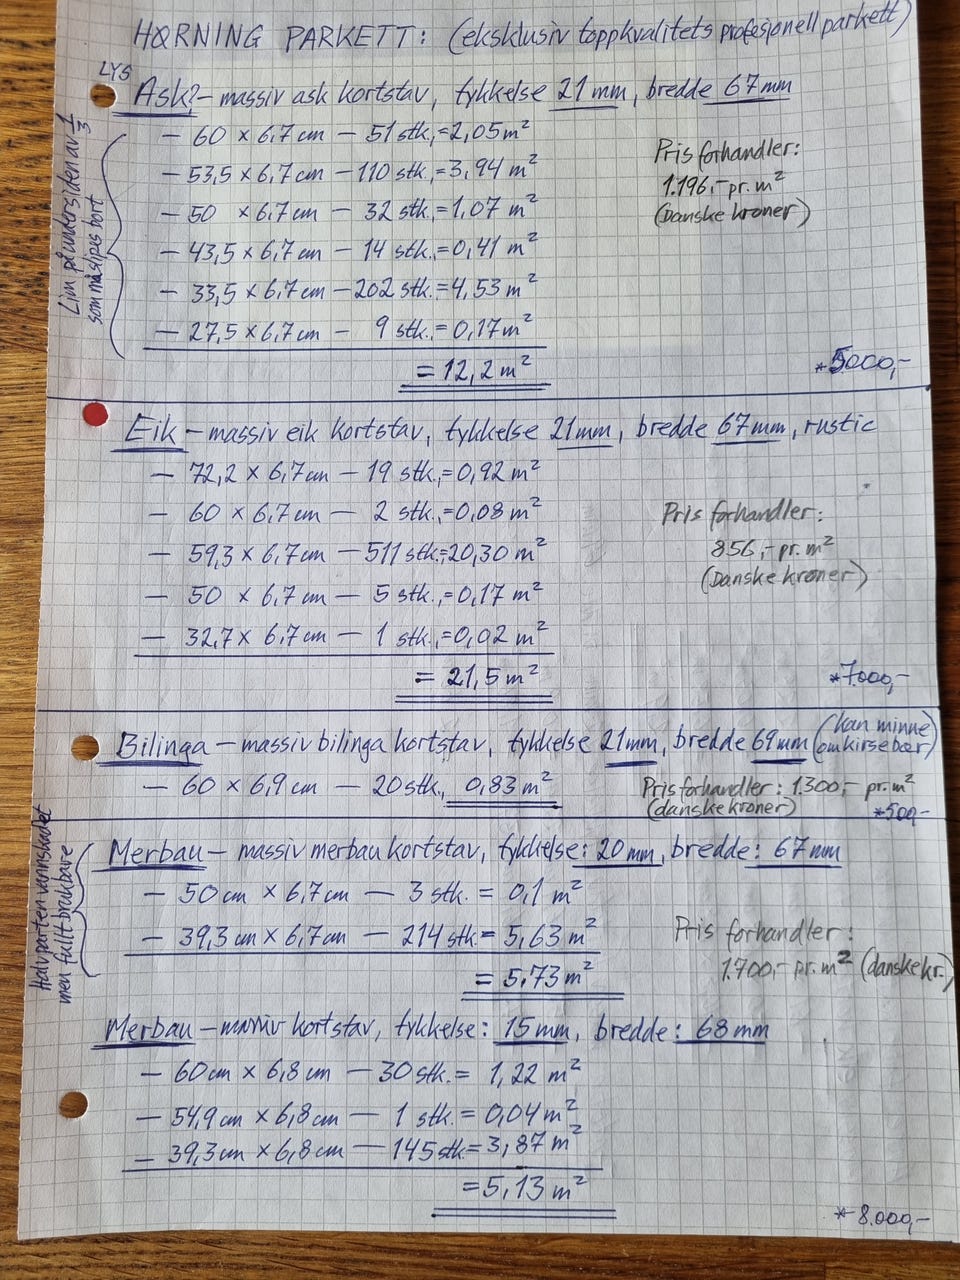 HØRNING PARKETT: (eksklusiv toppkvalitets profesjonell parkett)
LYS
Ask? - massiv ask kortstav, tykkelse 21 mm, bredde 67mm
- 60 x 6,7 cm - 51 stk, = 2,05 m²
- 53,5 x 6,7 cm - 110 stk, = 3,94 m²
- 50 x 6,7 cm - 32 stk, = 1,07 m²
- 43,5 x 6,7 cm - 14 stk, = 0,41 m²
- 33,5 x 6,7 cm - 202 stk. = 4,53 m²
- 27,5 x 6,7 cm - 9 stk. = 0,17 m²
= 12,2 m²
Lim på undersiden av 1/3
som må slipes bort
Pris forhandler:
1.196,- pr. m²
(Danske kroner)
*5000,-
Eik - massiv eik kortstav, tykkelse 21mm, bredde 67mm, rustic
- 72,2 x 6,7 cm - 19 stk., = 0,92 m²
- 60 x 6,7 cm - 2 stk., = 0,08 m²
- 59,3 x 6,7 cm - 511 stk. = 20,30 m²
- 50 x 6,7 cm - 5 stk., = 0,17 m²
- 32,7 x 6,7 cm - 1 stk., = 0,02 m²
= 21,5 m²
Pris forhandler:
856,- pr. m²
(Danske kroner)
*7.000,-
Bilinga - massiv bilinga kortstav, tykkelse 21mm, bredde 69mm (kan minne om kirsebær)
- 60 x 6,9 cm - 20 stk., 0,83 m²
Pris forhandler: 1.300,- pr. m²
(danske kroner)
*500,-
Merbau - massiv merbau kortstav, tykkelse: 20 mm, bredde: 67mm
- 50 cm x 6,7 cm - 3 stk. = 0,1 m²
- 39,3 cm x 6,7 cm - 214 stk = 5,63 m²
= 5,73 m²
Halvparten vannskadet
men fullt brukbare
Pris forhandler:
1.700,- pr. m² (danske kr.)
Merbau - massiv kortstav, tykkelse: 15 mm, bredde: 68 mm
- 60 cm x 6,8 cm - 30 stk. = 1,22 m²
- 54,9 cm x 6,8 cm - 1 stk. = 0,04 m²
- 39,3 cm x 6,8 cm - 145 stk = 3,87 m²
= 5,13 m²
* 8.000,-